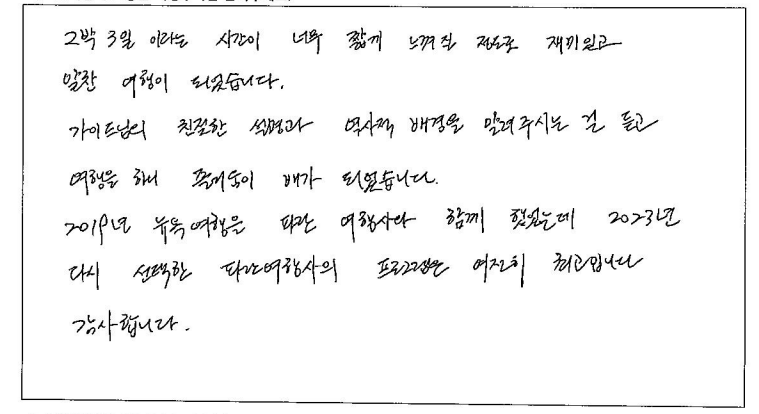 2박 3일 이라는 시간이 너무 짧게 느껴질 정도로 재미있고
알찬 여행이 되었습니다.
가이드님의 친절한 설명과 역사적 배경을 알려주시는 걸 듣고
여행을 하니 즐거움이 배가 되었습니다.
2019년 뉴욕여행을 파란 여행사와 함께 했었는데 2023년
다시 선택한 파란여행사의 프로그램은 여전히 최고입니다
감사합니다.